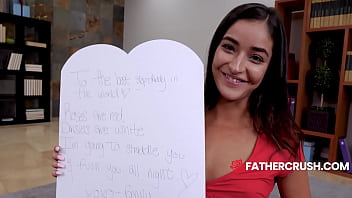 To the best stepdaddy in
the world!
Roses are red,
Daisies are white
I'm going to straddle you
& fuck you all night
Love - Emily
FATHERCRUSH.COM